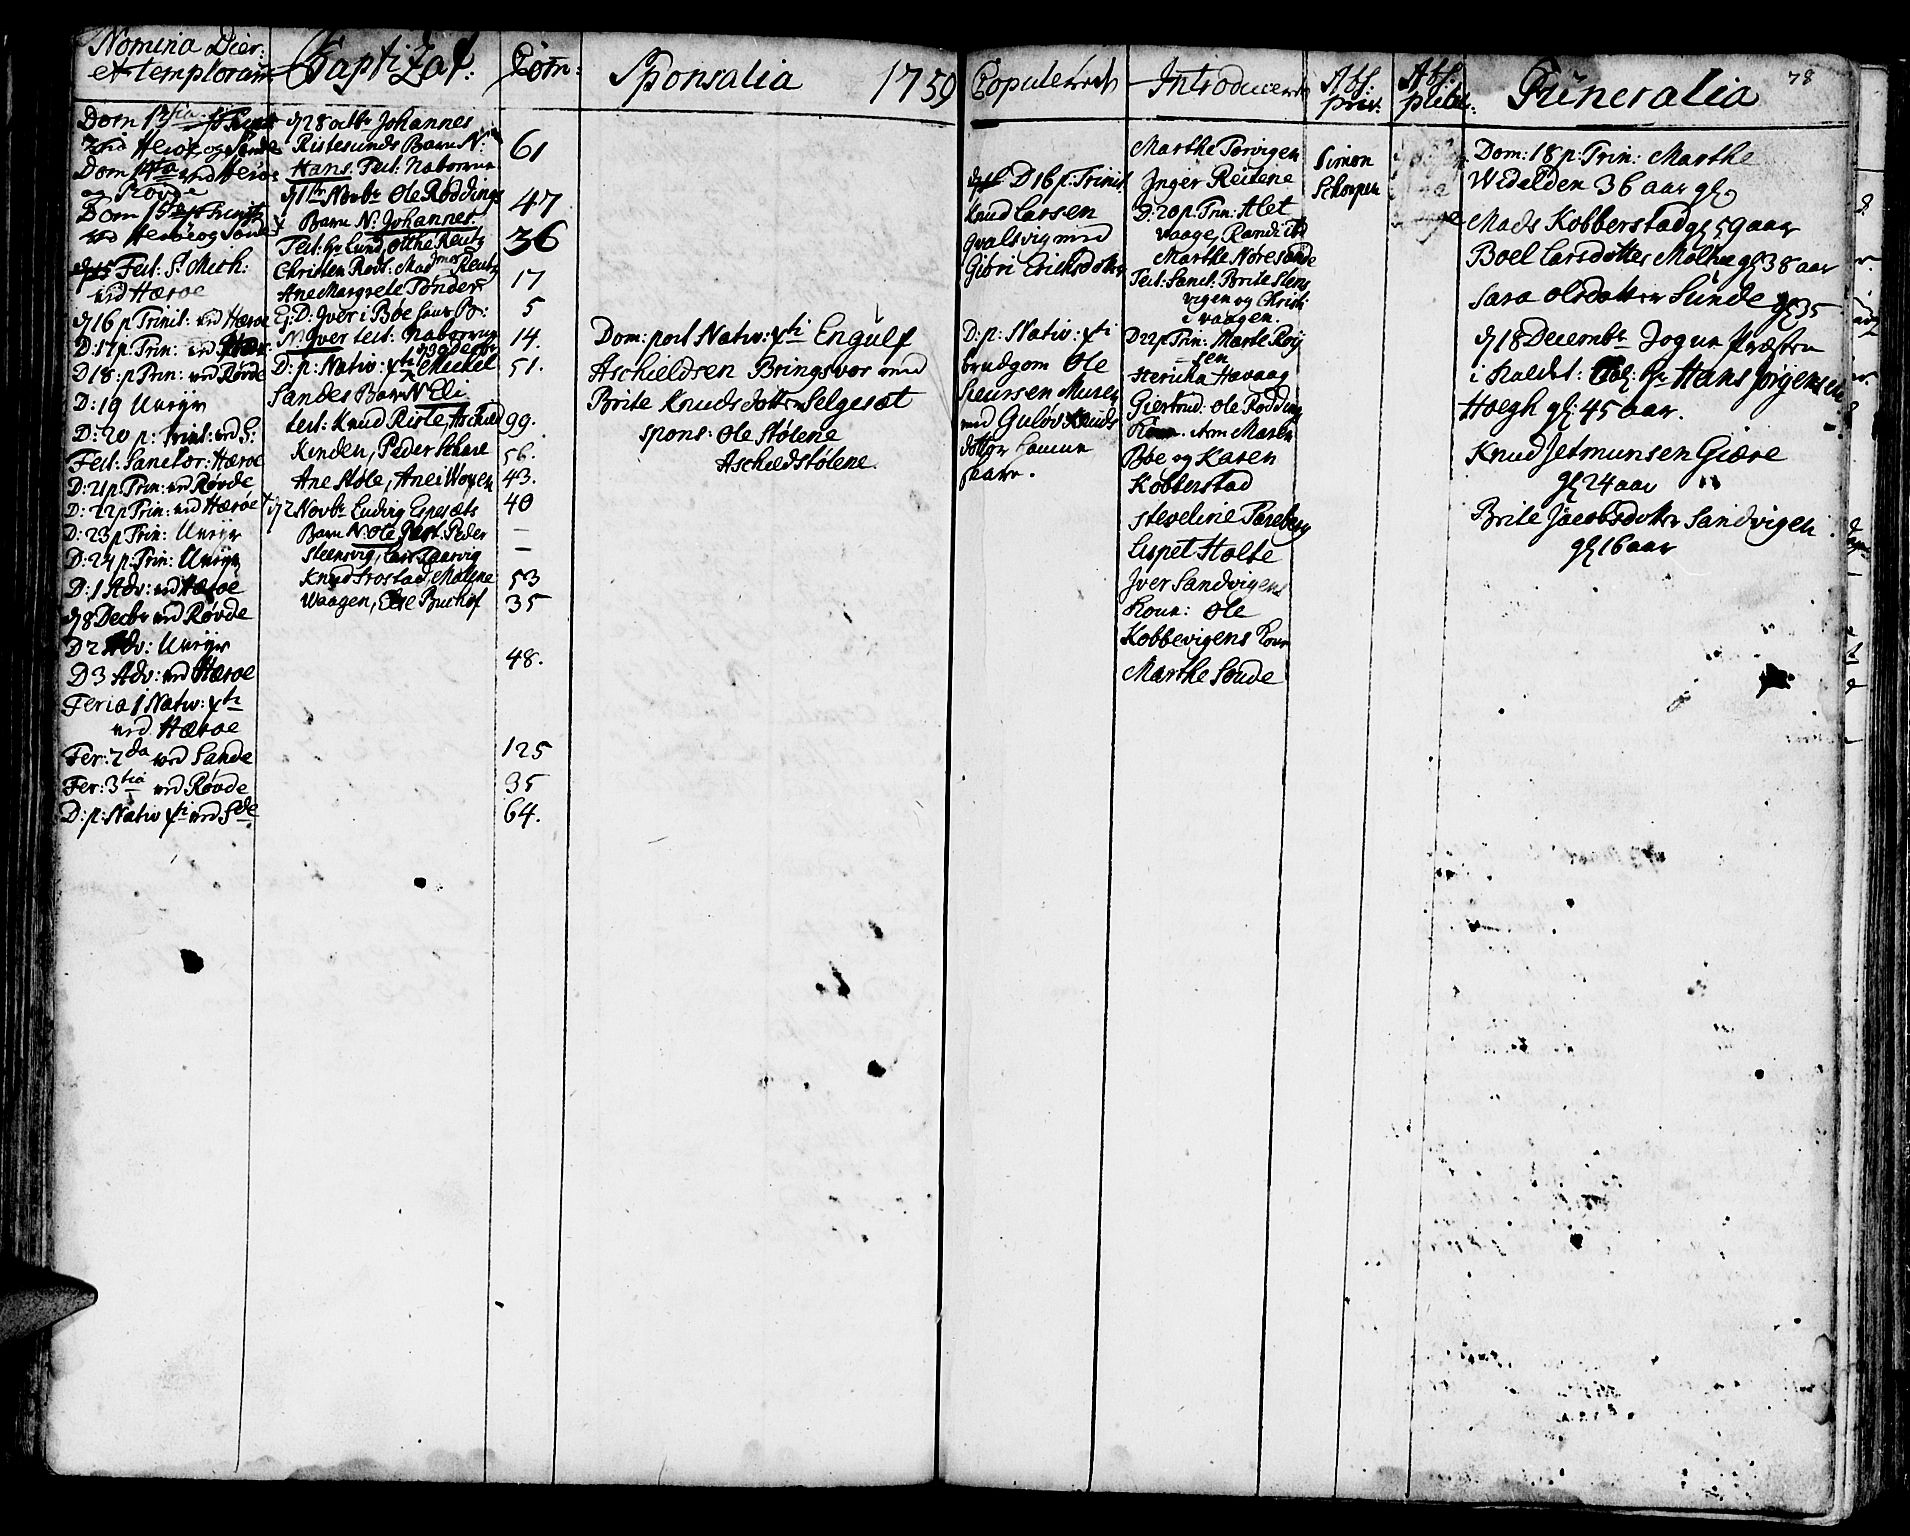 Nomina Dier:
et templorum
Dom 13tia p Trinit
ved Herøe og Sande
Dom 14ta ved Herøe
og Røvde
Dom 15 p Trinit
ved Herøe og Sande
Fest: S: Mich:
vid Hæroe
d 16 p Trinit: ved Hæroe
D: 17 p Trin: ved
D 18: p Trin: ved Røvde
D: 19 Uveÿr
D: 20 p: Trinit: ved S:
Fest: Sanctor: Hæroe
D: 21 p Trin: ved Røvde
D: 22 p Trin: ved Hæroe
D: 23 p Trin: Uveÿr
D: 24 p: Trin: Uveÿr
D: 1 Adv: ved Hæroe
d 8 Decbr ved Røvde
D 2 Adv: Uveÿr
D 3 Adv: ved Hæroe
Feria 1 Nativ: xti
ved Hæroe
Fer: 2da ved Sande
Fer: 3tia ved Røvde
D: p: Nativ xti ved Sde
Baptizat:
d 28 octbr Johannes
Ristesunds Barn N:
Hans Test: Naboerne
d 1te Novbr Ole Røddings
Barn N: Johannes
Test: Hr Lund, Otthe Reutz
Christen Rod: Mad Reutz
Ane Margrete Tønder
Ej: D: Jver i Bøe Barn
N: Jver test: Naboerne
D: p: Nativ: xti Michel
Sandes Barn N Eli
test: Knud Riste, Aschild
Kinden, Peder
Ane Støle, Ane i Woyen
d 2 Novbr Ludvig Espesæts
Barn N: Ole Test: Peder
Steensvig, Lars Laarvig
Knud Frostad, Malene
Waagen, Else Buchof
Com:
61
47
36
17
5
14.
51.
99.
56.
43.
40
—
—
53
35
48.
125
35
64.
Sponsalia 1759
Dom: post Nativ: xti Engulf
Aschieldsen Bringsvor med
Brite Knuds dotter Selgesæt
spons: Ole Stølene
Aschiedstølene.
Copuleret
D 16 p: Trinit
Knud Larsen
Qvalsvig med
Giøri Ericksdotter
D: p: Nativ: xti
brudgom Ole
Siursen Muren
med Gulov Knuds
dotter
Introducered
Marthe Porvigen
Inger Reitene
D: 20 p. Trin: Alet
Vaage, Randi
Marthe Nøresande
Fest: Sanct: Brite Stens
vigen og Christi
i vaagen.
D 22 p Trin: Marte Roy
sen
Hericha Havaag
Giertrud: Ole Rødding
Kone. Arn Maren
Bøe og Karen
Kobberstad
Steveline Pareberg
Lispet Holte
Jver Sandvigens
Kone: Ole
Kobbevigens kone
Marthe Sønde
Abs:
priv:
Simon
Schorpen
Abs:
publ:
Funeralia 78
Dom: 18 p: Trin: Marthe
Wedelden 36 aar gl
Mads Kobberstad gl 59 aar
Boel Larsdotter Molne gl 38 aar
Sara Olsdotter Sünde gl 35
d 18 Decembr Jogun Præsten
i Kaldet: Hr Hans Jørgensen
Hoegh gl: 45 aar.
Knud Jetmunsen Giære
gl 24 aar
Brite Jacobsdotter Sandvigen
gl 16 aar